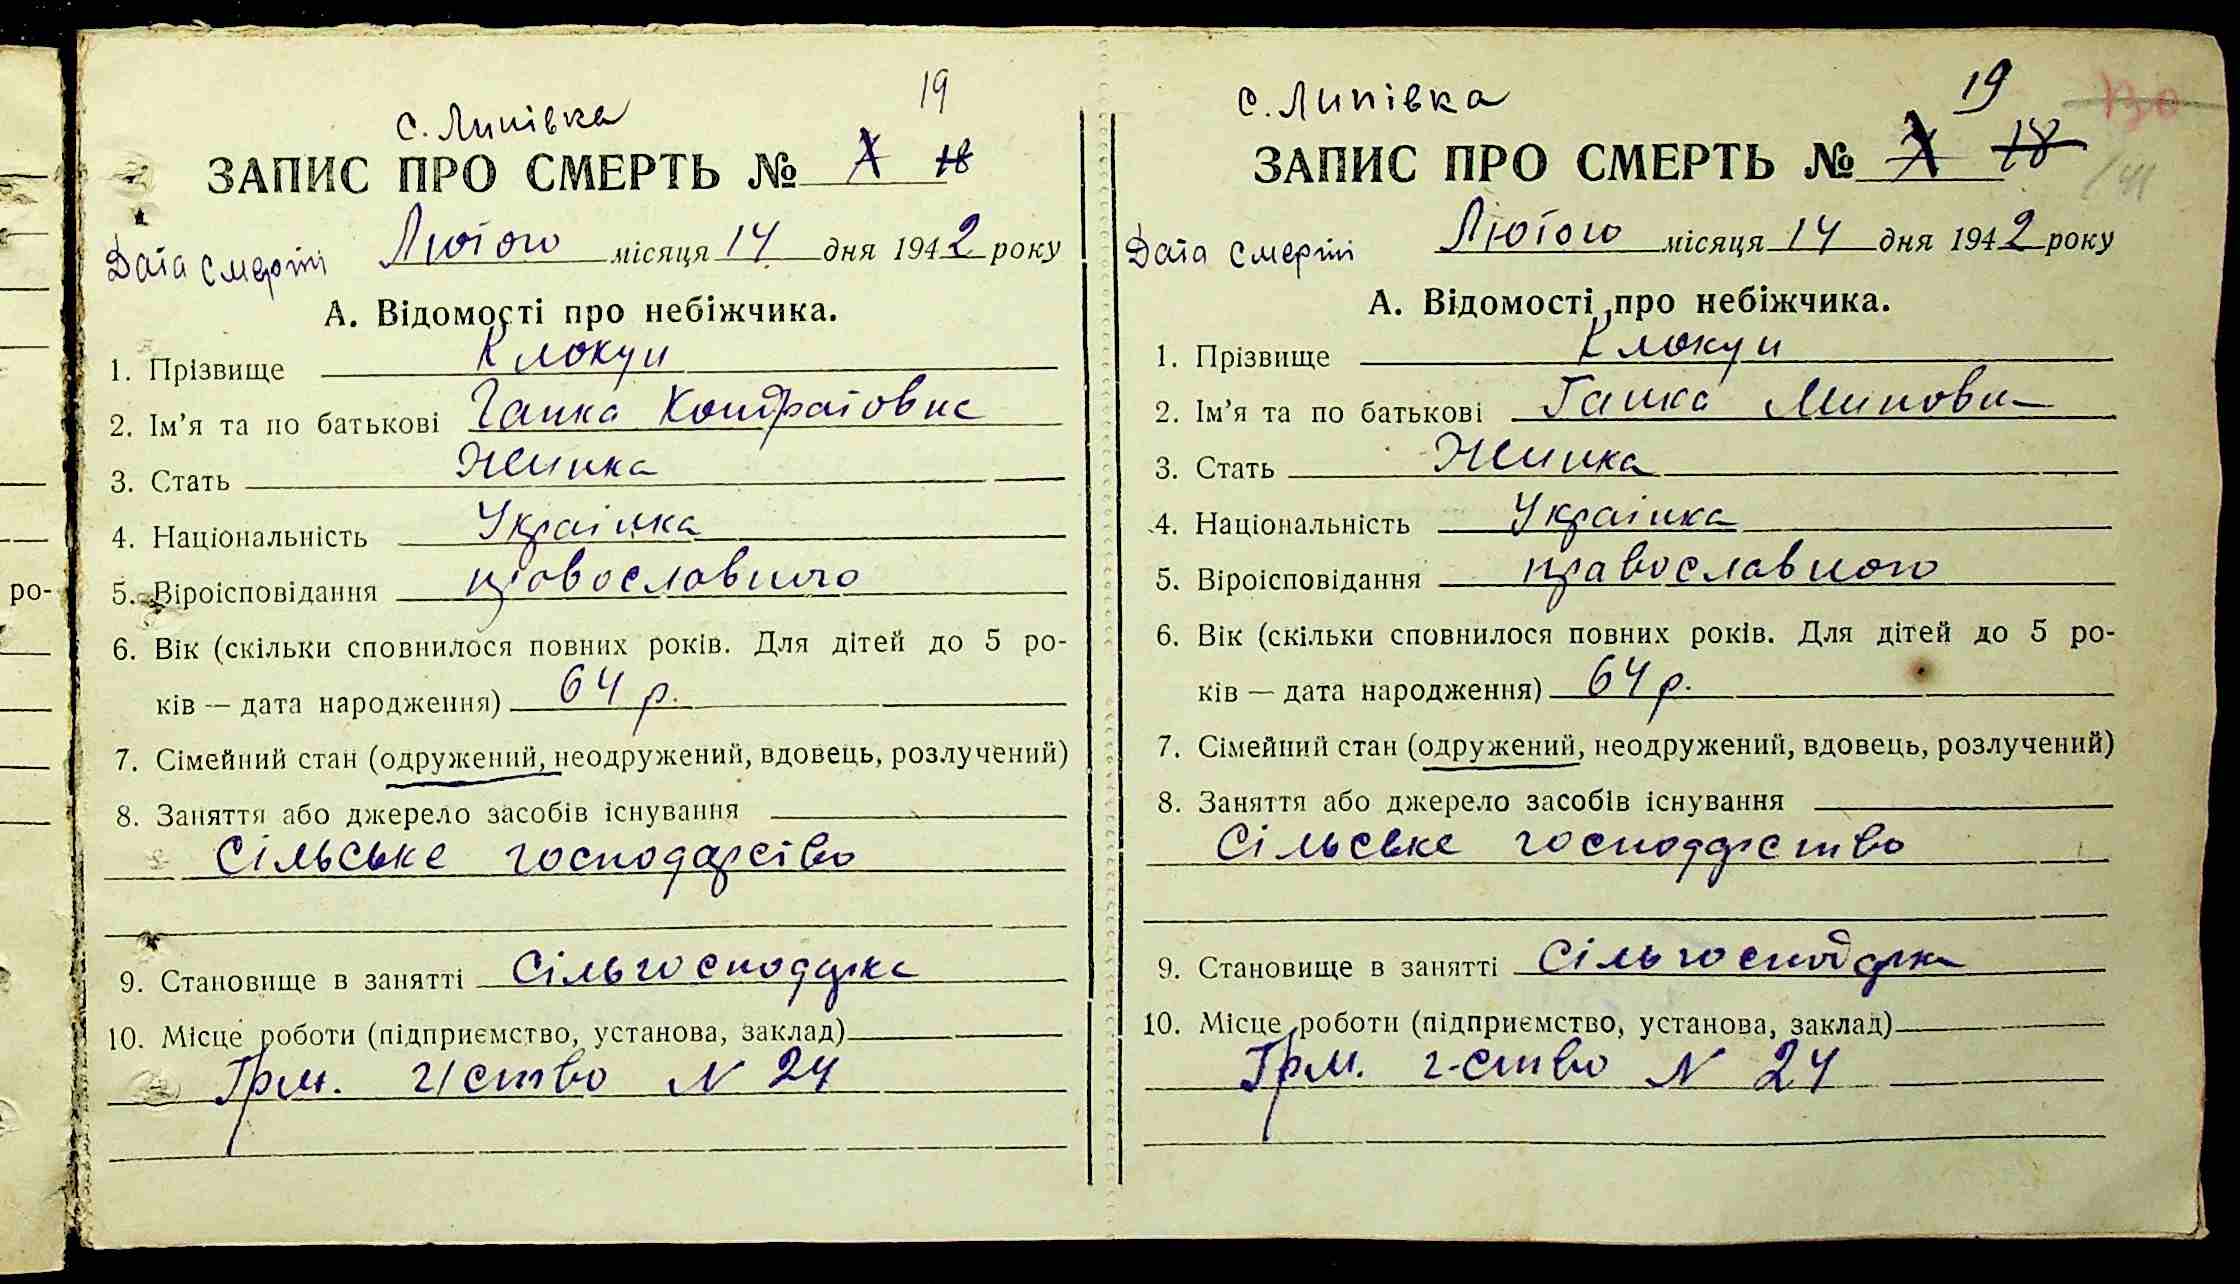 ро-
19
с. Липівка
ЗАПИС ПРО СМЕРТЬ № X 18
Дата смерті Лютого місяця 14 дня 1942 року
А. Відомості про небіжчика.
1. Прізвище Клокун
2. Ім'я та по батькові Ганна Кондратовна
3. Стать Жинка
4. Національність Українка
5. Віроісповідання православного
6. Вік (скільки сповнилося повних років. Для дітей до 5 ро-
ків — дата народження) 64 р.
7. Сімейний стан (одружений, неодружений, вдовець, розлучений)
8. Заняття або джерело засобів існування
Сільське господарство
9. Становище в занятті Сільгосподарка
10. Місце роботи (підприємство, установа, заклад)
Грм. г/ство N 24
19
130
с. Липівка
ЗАПИС ПРО СМЕРТЬ № X 18
141
Дата смерті Лютого місяця 14 дня 1942 року
А. Відомості про небіжчика.
1. Прізвище Клокун
2. Ім'я та по батькові Ганка
3. Стать Жинка
4. Національність Українка
5. Віроісповідання православного
6. Вік (скільки сповнилося повних років. Для дітей до 5 ро-
ків — дата народження) 64 р.
7. Сімейний стан (одружений, неодружений, вдовець, розлучений)
8. Заняття або джерело засобів існування
Сільське господарство
9. Становище в занятті Сільгосподарка
10. Місце роботи (підприємство, установа, заклад)
Грм. г-ство N 24